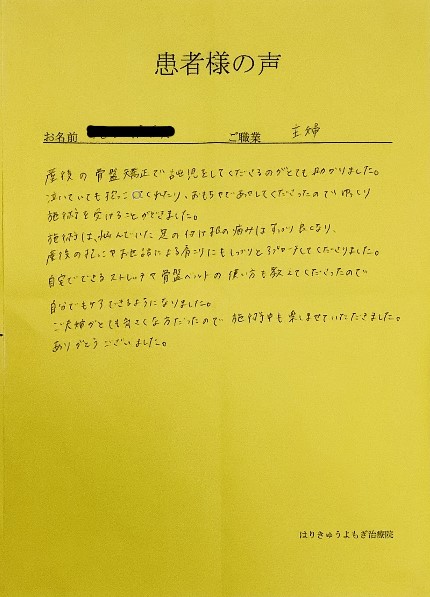 患者様の声
お名前 ご職業 主婦
産後の骨盤矯正で託児をしてくださるのがとても助かりました。
泣いていても抱っこしてくれたり、おもちゃであやしてくださったのでゆっくり
施術を受けることができました。
施術は、悩んでいた足の付け根の痛みはすっかり良くなり、
産後の抱っこやお世話による肩こりにもしっかりとアプローチしてくださりました。
自宅でできるストレッチや骨盤ベルトの使い方も教えてくださったので
自分でもケアできるようになりました。
ご夫婦がとても気さくな方だったので施術中も楽しませていただきました。
ありがとうございました。
はりきゅうよもぎ治療院